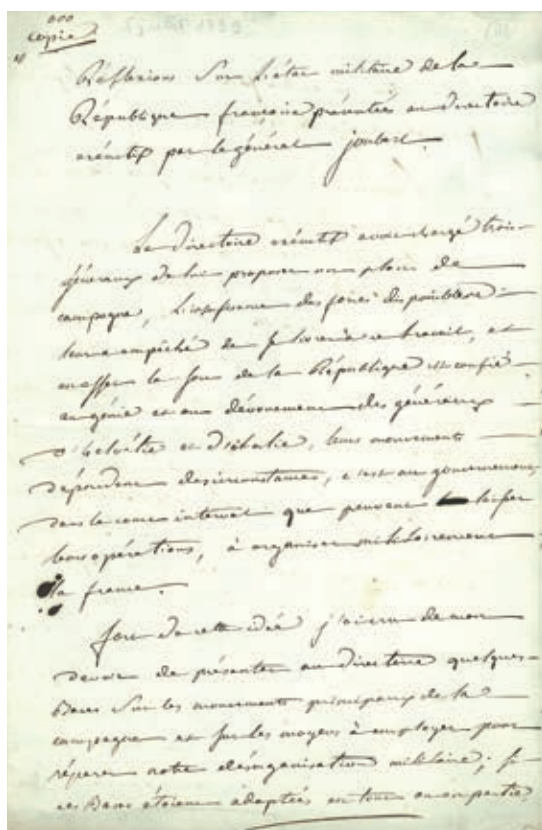 Copie
Réflexions Sur l'état militaire de la
République française présentées au directoire
exécutif par le général joubert.
Le Directoire exécutif avoit chargé trois
généraux de lui proposer un plan de
campagne, L'insuffisance des forces disponibles
leur a empêché de se livrer à ce travail, et
en effet le sort de la République est confié
au génie et au dévouement des généraux
d'helvétie et d'italie, leurs mouvements
dépendent des circonstances, c'est au gouvernement,
dans le court interval que peuvent laisser
leurs opérations, à organiser militairement
la france.
fort de cette idée j'ai cru de mon
devoir de présenter au directoire quelques
Bases Sur les mouvements principaux de la
campagne et sur les moyens à employer pour
réparer notre désorganisation militaire; si
ces Bases étoient adoptées en tout ou en partie